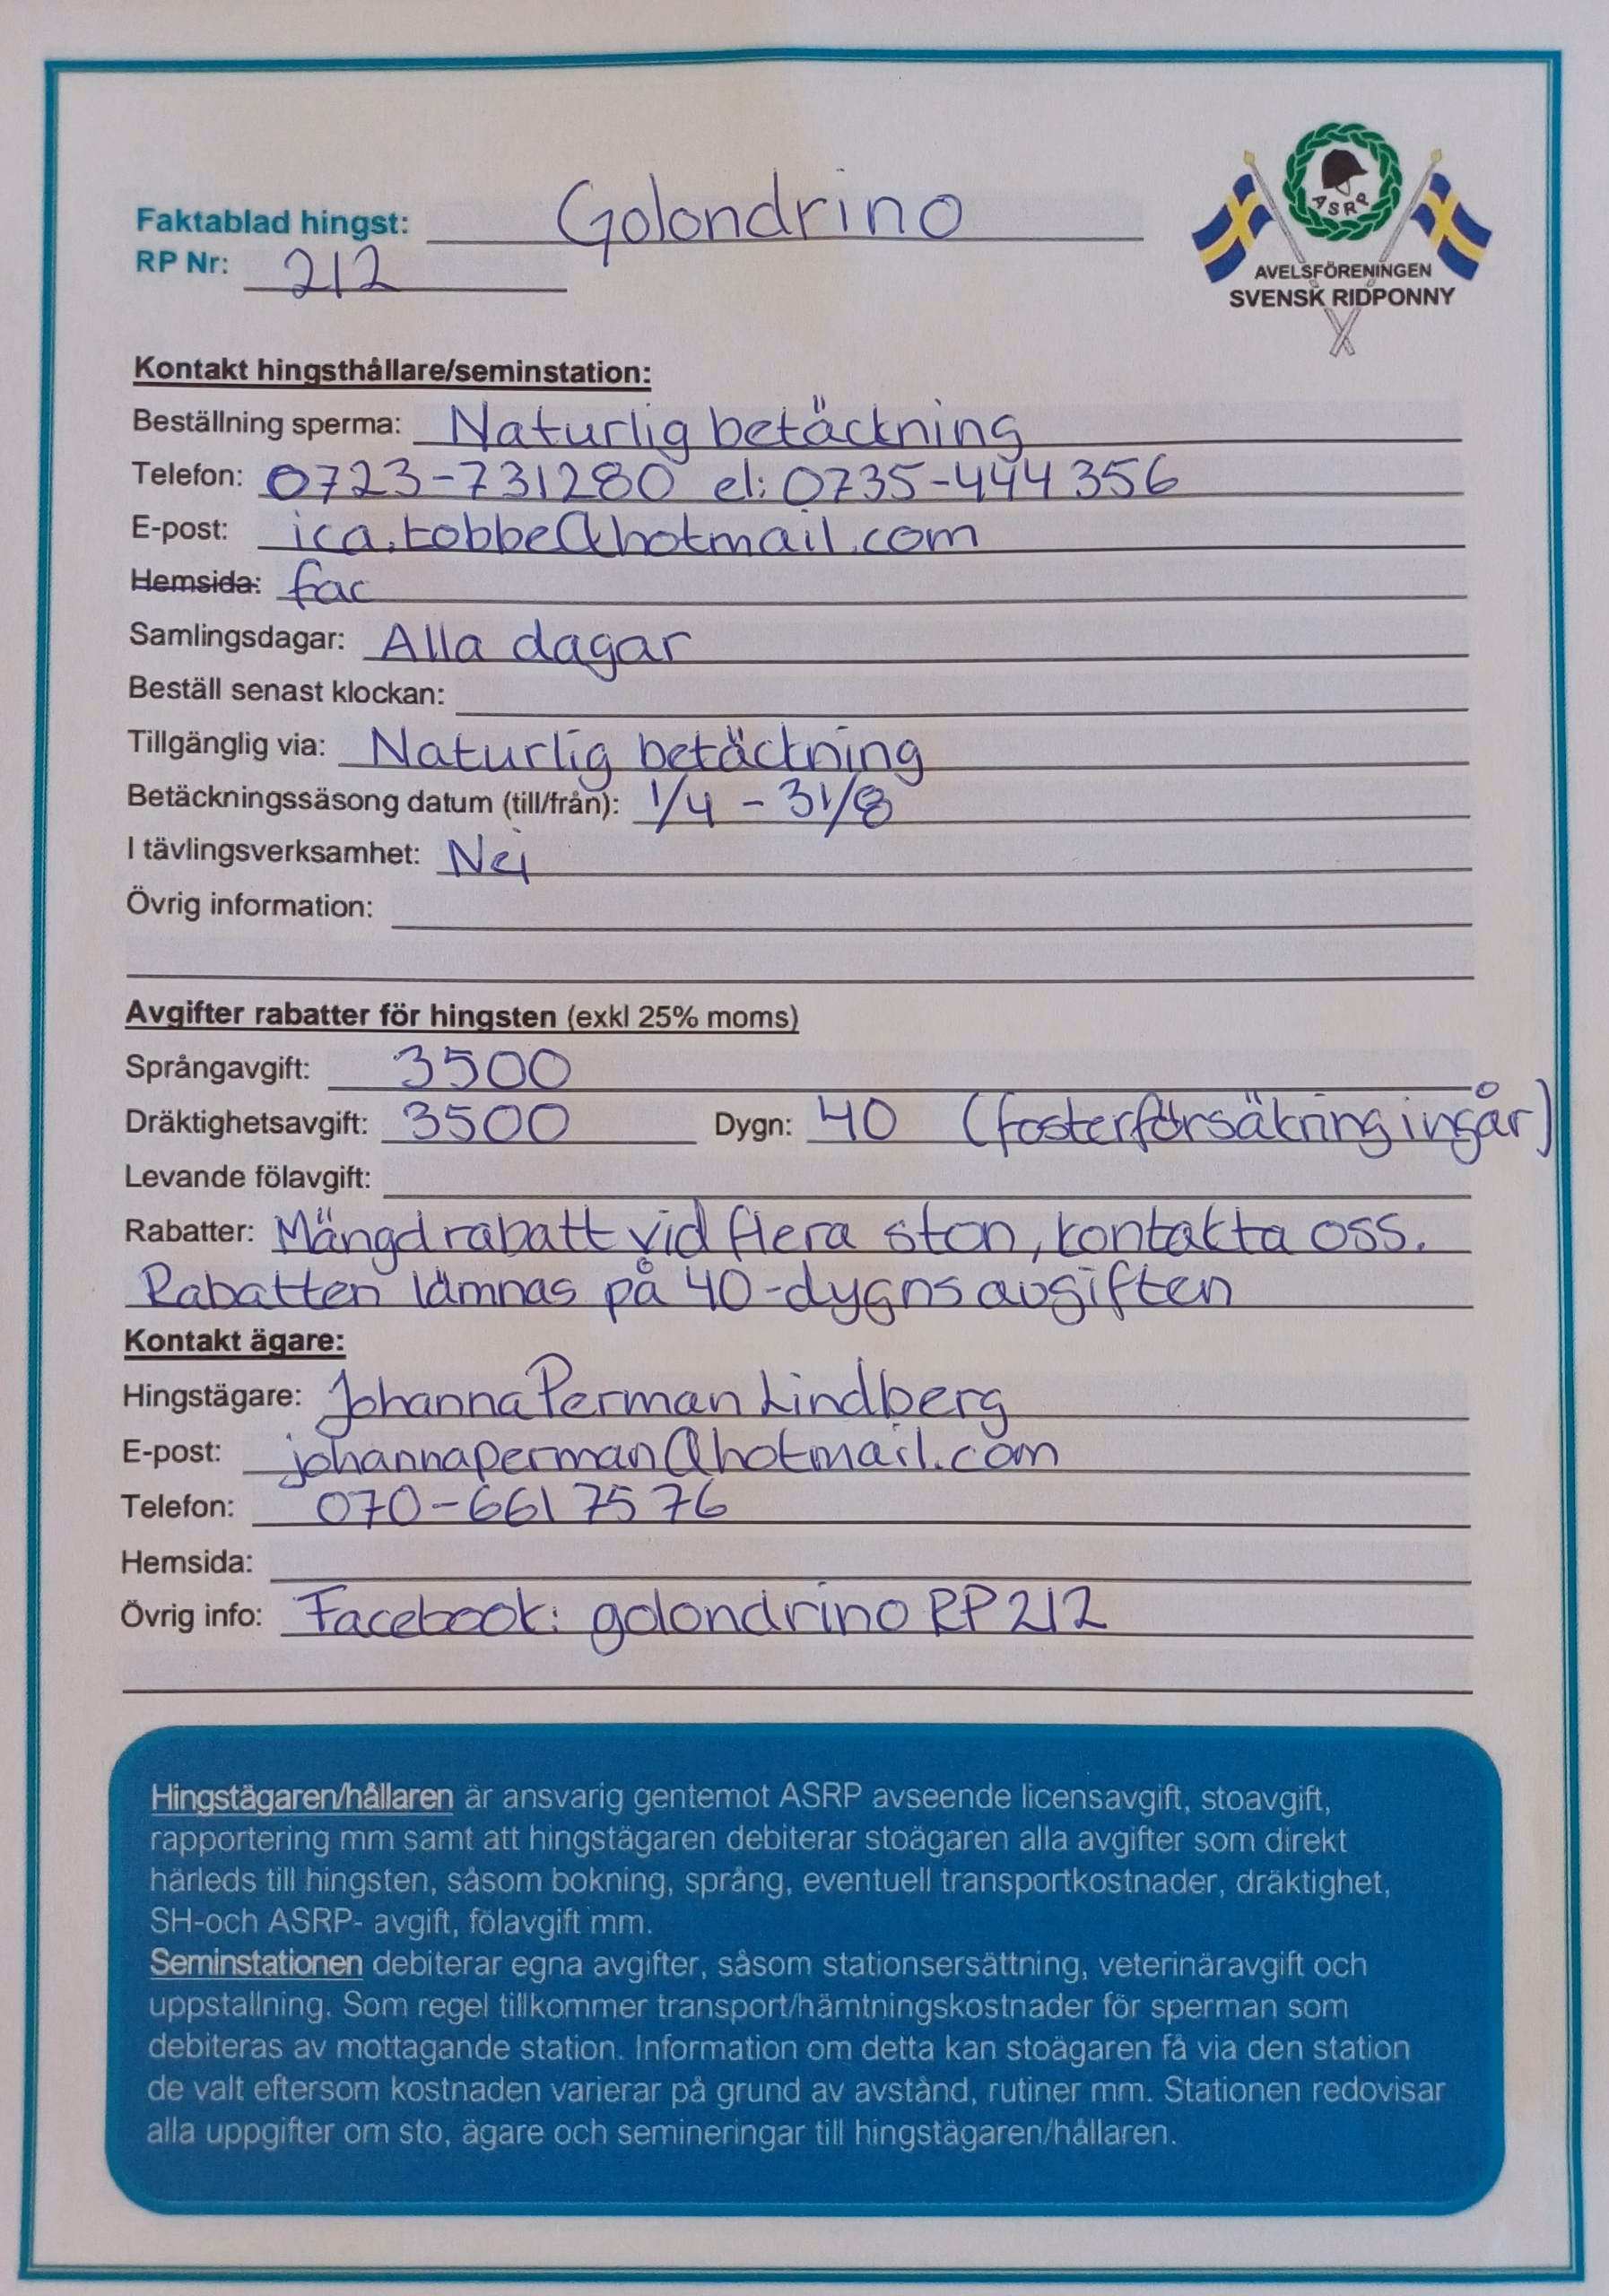 Faktablad hingst: Golondrino
RP Nr: 212
ASRP
AVELSFÖRENINGEN
SVENSK RIDPONNY
Kontakt hingsthållare/seminstation:
Beställning sperma: Naturlig betäckning
Telefon: 0723-731280 el: 0735-444 356
E-post: ica.tobbe@hotmail.com
Hemsida: fac
Samlingsdagar: Alla dagar
Beställ senast klockan:
Tillgänglig via: Naturlig betäckning
Betäckningssäsong datum (till/från): 1/4 - 31/8
I tävlingsverksamhet: Nej
Övrig information:
Avgifter rabatter för hingsten (exkl 25% moms)
Språngavgift: 3500
Dräktighetsavgift: 3500 Dygn: 40 (fosterförsäkring ingår)
Levande fölavgift:
Rabatter: Mängdrabatt vid flera ston, kontakta oss.
Rabatten lämnas på 40-dygnsavgiften
Kontakt ägare:
Hingstägare: Johanna Perman Lindberg
E-post: johannaperman@hotmail.com
Telefon: 070-661 75 76
Hemsida:
Övrig info: Facebook: golondrino RP 212
Hingstägaren/hållaren är ansvarig gentemot ASRP avseende licensavgift, stoavgift,
rapportering mm samt att hingstägaren debiterar stoägaren alla avgifter som direkt
härleds till hingsten, såsom bokning, språng, eventuell transportkostnader, dräktighet,
SH-och ASRP- avgift, fölavgift mm.
Seminstationen debiterar egna avgifter, såsom stationsersättning, veterinäravgift och
uppstallning. Som regel tillkommer transport/hämtningskostnader för sperman som
debiteras av mottagande station. Information om detta kan stoägaren få via den station
de valt eftersom kostnaden varierar på grund av avstånd, rutiner mm. Stationen redovisar
alla uppgifter om sto, ägare och semineringar till hingstägaren/hållaren.